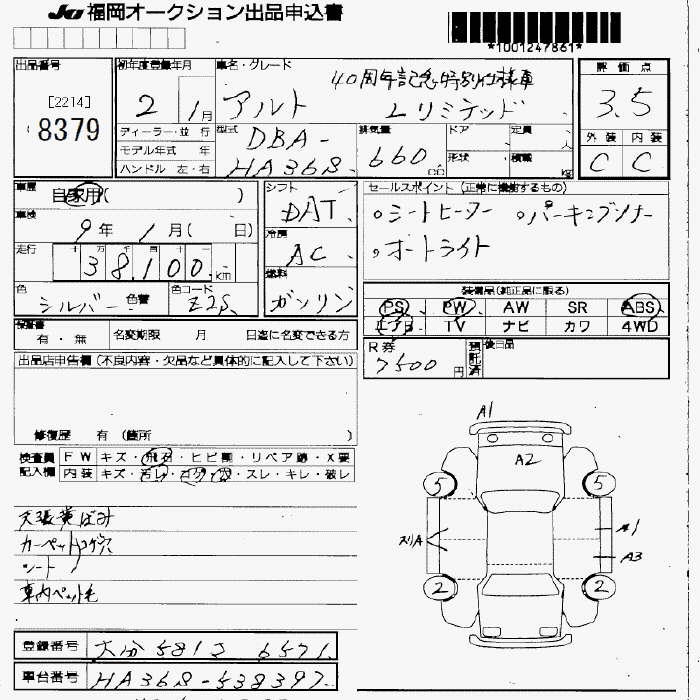 JU 福岡オークション出品申込書
*1001247861*
出品番号
[2214]
8379
初年度登録年月
2 1月
車名・グレード
40周年記念特別仕様車
アルト Lリミテッド
評価点
3.5
外装 内装
C C
ディーラー・並行
モデル年式 年
ハンドル 左・右
型式
DBA-
HA36S
排気量
660 cc
ドア
形状
定員 人
積載 kg
車歴
自家用( )
車検
9年 1月( 日)
走行
十 万 千 百 十
38,100 km
色
シルバー 色替
色コード
Z2S
シフト
DAT
冷房
AC
燃料
ガソリン
セールスポイント (正常に機能するもの)
○シートヒーター ○パーキングソナー
○オートライト
装備品(純正品に限る)
PS PW AW SR ABS
エアB TV ナビ カワ 4WD
保証書
有・無
名変期限 月 日迄に名変できる方
R券
7500円
預託済
後日品
出品店申告欄 (不良内容・欠品など具体的に記入して下さい)
修復歴 有 (箇所 )
検査員記入欄
FW キズ・飛石・ヒビ割・リペア跡・X要
内装 キズ・汚レ・コゲ・穴・スレ・キレ・破レ
天張黄ばみ
カーペットコゲ穴
シート
車内ペット毛
A1
A2
5
5
スリA
A1
A3
2
2
登録番号
大分 581 さ 6571
車台番号
HA36S-538397